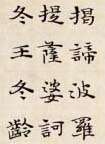 揭諦波羅
提薩婆訶
冬王冬齡